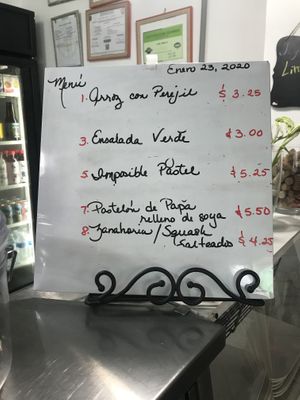 Enero 23, 2020
Menú
1. Arroz con Perejil $3.25
3. Ensalada Verde $3.00
5. Imposible Pastel $5.25
7. Pastelón de Papa relleno de soya $5.50
8. Zanahoria/Squash Salteados $4.25